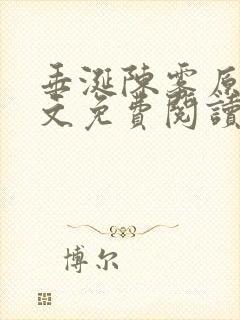 垂涎陳雾原
文免費閱讀
博尔